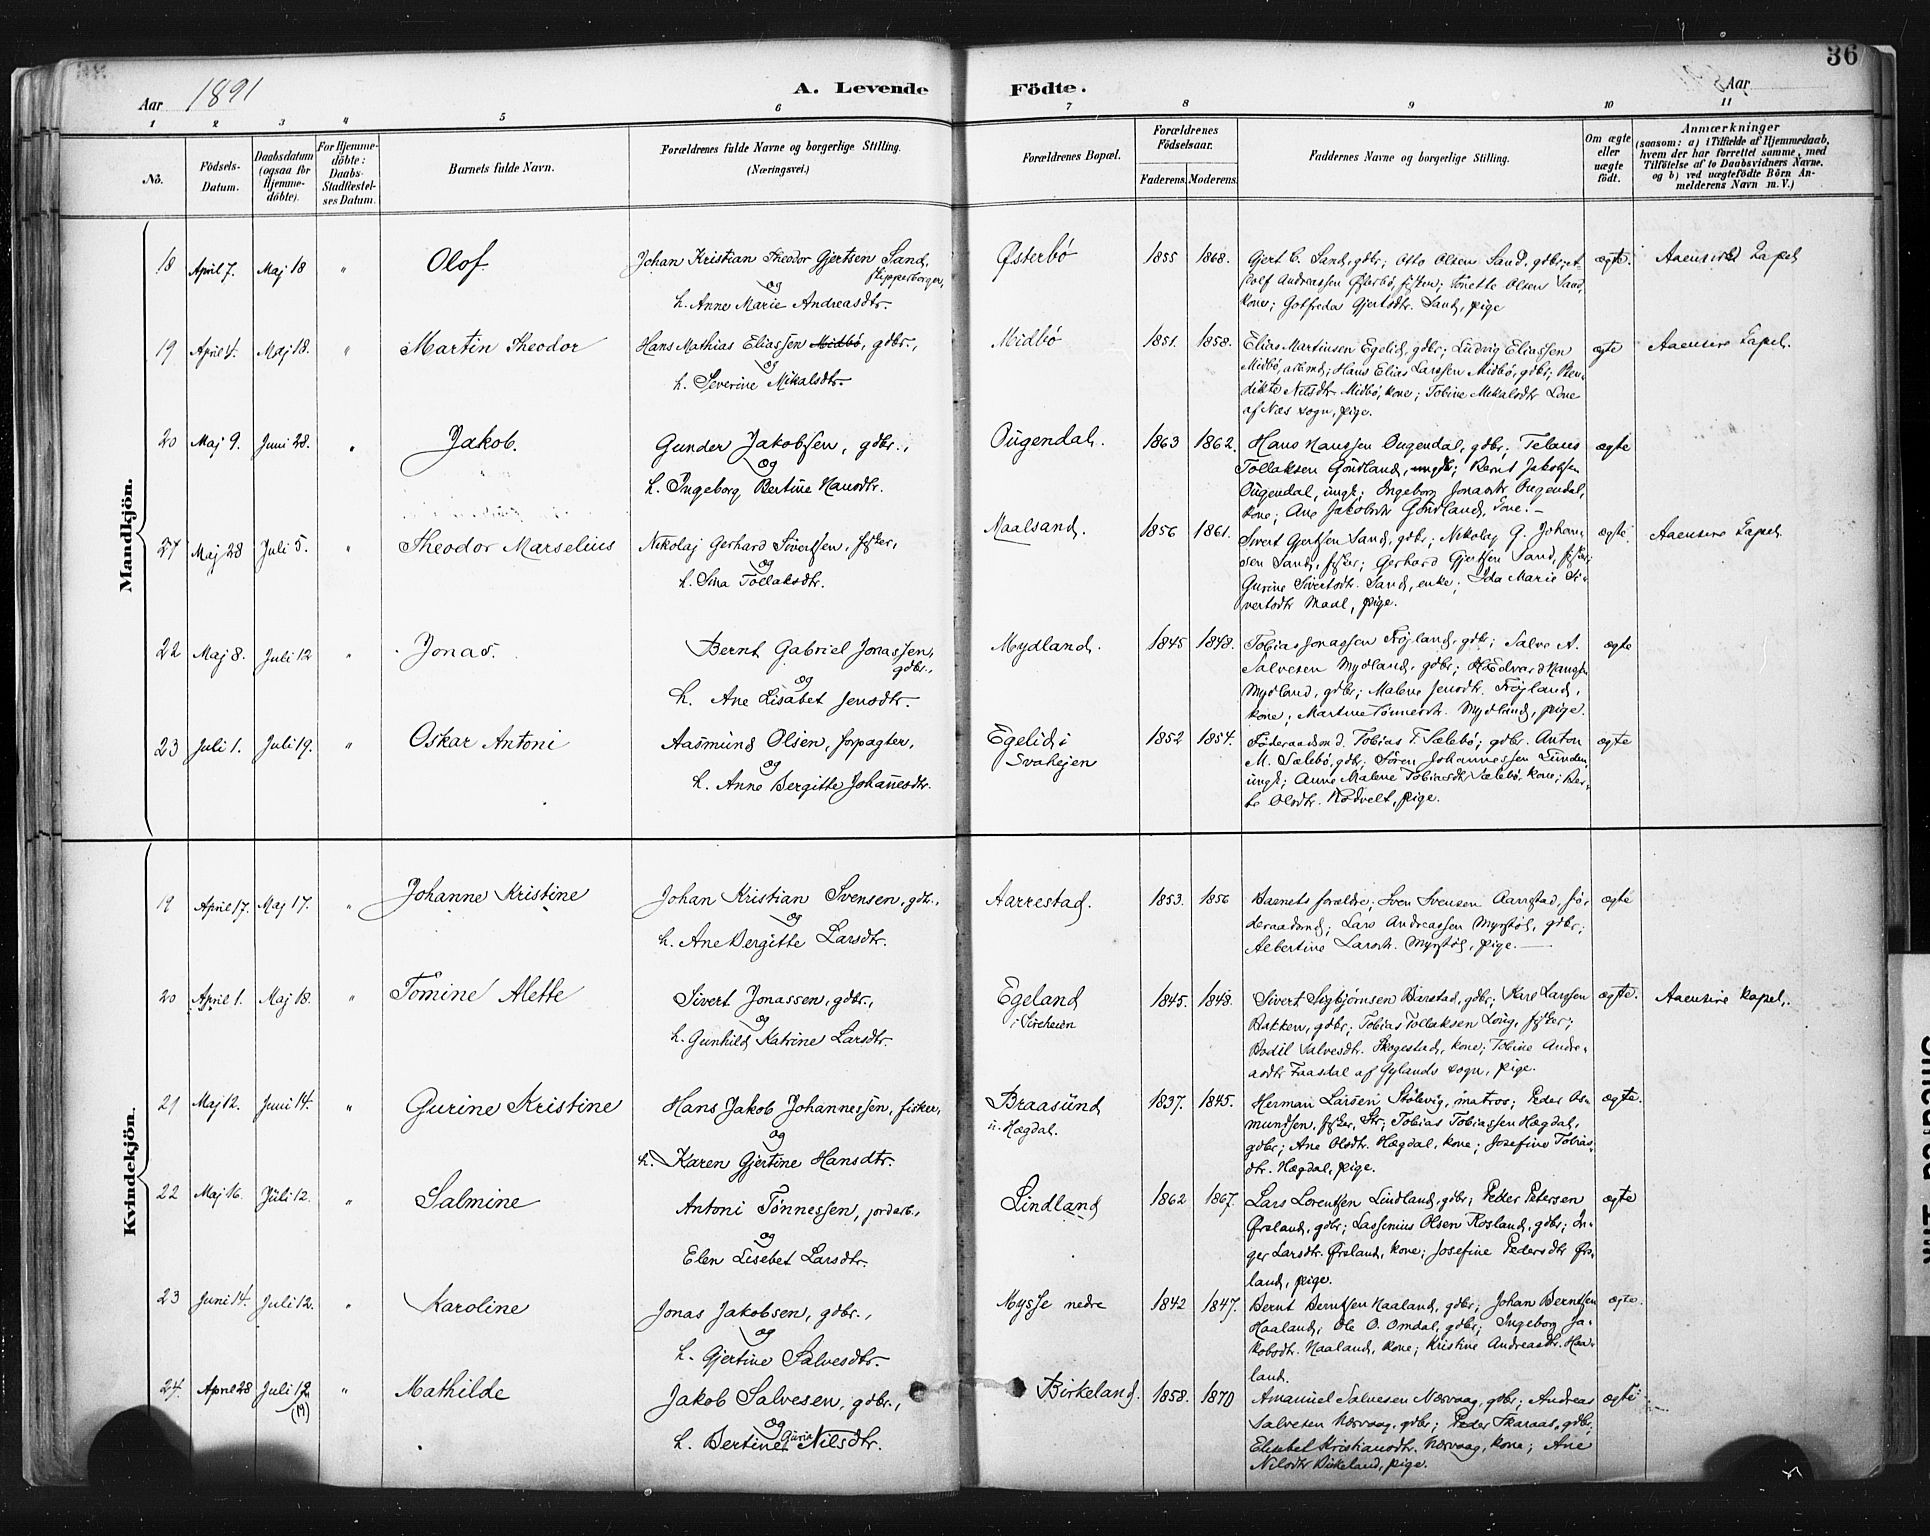 36
Aar 1891
A. Levende Födte.
Aar
1 2 3 4 5 6 7 8 9 10 11
No.
Födsels-Datum.
Daabsdatum (ogsaa for Hjemme-döbte).
For Hjemme-döbte: Daabs-Stadfæstel-ses Datum.
Barnets fulde Navn.
Forældrenes fulde Navne og borgerlige Stilling. (Næringsvei.)
Forældrenes Bopæl.
Forældrenes Födselsaar.
Faderens. Moderens.
Faddernes Navne og borgerlige Stilling.
Om ægte eller uægte födt.
Anmærkninger
(saasom: a) i Tilfælde af Hjemmedaab, hvem der har forrettet samme, med Tilföielse af to Daabsvidners Navne. og b) ved uægtefödte Börn Anmelderens Navn m. V.)
Mandkjön.
18 April 7. Maj 18 " Olof. Johan Kristian Theodor Gjertsen Sand, skipperborger, og h. Anne Marie Andreasdtr. Østerbø 1855 1868.
Gert C. Sand, gdbr; Otto Olsen Sand, gdbr; et-
Olof Andreassen Østerbø, fisker; Tonette Olsen Sand,
kone; Gotfreda Gjertsdtr. Sand, pige
ægte. Aaensire Kapel
19 April 4. Maj 18. " Martin Theodor Hans Mathias Eliassen Midbø, gdbr., og h. Severine Mikalsdtr. Midbø 1851. 1858.
Elias Martinsen Egelid, gdbr; Ludvig Eliassen
Midbø, arbmd; Hans Elias Larssen Midbø, gdbr; Ben-
dikte Nilsdtr. Midbø, kone; Tobine Mikalsdtr Lone
af Næs sogn, pige.
ægte Aaensire Kapel.
20 Maj 9. Juni 28. " Jakob. Gunder Jakobsen, gdbr., og h. Ingeborg Bertine Hansdtr. Ougendal. 1863 1862.
Hans Hanssen Ougendal, gdbr; Telaus
Tollaksen Gursland, ungk; Bernt Jakobsen
Ougendal, ungk; Ingeborg Jonasdtr. Ougendal,
kone; Ane Jakobsdtr Gursland, kone.
ægte
21 Maj 28 Juli 5. " Theodor Marselius Nikolaj Gerhard Sivertsen, fisker, og h. Sina Tollaksdtr. Maalsand. 1856 1861.
Sivert Gjertsen Sand, gdbr; Nikolaj G. Johan-
sen Sand, fisker; Gerhard Gjertsen Sand, fisker;
Gurine Sivertsdtr. Sand, enke; Ida Marie Si-
vertsdtr Maal, pige.
ægte. Aaensire Kapel
22 Maj 8. Juli 12 " Jonas. Bernt Gabriel Jonassen, gdbr., og h. Ane Lisabet Jensdtr. Mydland. 1845 1848.
Tobias Jonassen Frøjland, gdbr; Salve A.
Salvesen Mydland, gdbr; Edvard Hansen
Mydland, gdbr; Malene Jensdtr. Frøjland,
kone; Martine Tønnesdtr. Mydland, pige.
ægte
23 Juli 1. Juli 19. " Oskar Antoni Aasmund Olsen, forpagter, og h. Anne Bergitte Johannesdtr. Egelid i Svahejen 1852 1854.
Føderaadsmd. Tobias T. Sælebø; gdbr. Anton
M. Sælebø, gdbr; Søren Johannessen Lunden,
ungk; Anne Malene Tobiasdtr Sælebø, kone; Ber-
te Olsdtr. Rødvelt, pige.
ægte
Kvindekjön.
19 April 17. Maj 17. " Johanne Kristine Johan Kristian Svensen, gdbr., og h. Ane Bergitte Larsdtr. Aarrestad. 1853. 1856
Barnets forældre; Sven Svensen Aarrestad, fø-
deraadsmd; Lars Andreassen Myrstøl, gdbr;
Albertine Larsdtr. Myrstøl, pige.
ægte
20 April 1. Maj 18. " Tomine Alette Sivert Jonassen, gdbr., og h. Gunhild Katrine Larsdtr. Egeland i Sireheien 1845. 1848.
Sivert Sigbjørnsen Barstad, gdbr; Karl Larssen
Bakken, gdbr; Tobias Tollaksen Loug, fisker;
Bodil Salvesdtr. Skogestad, kone; Tobine Andre-
asdtr Faasdal af Gylands sogn, pige.
ægte. Aaensire Kapel.
21 Maj 12. Juni 14. " Gurine Kristine Hans Jakob Johannessen, fisker, og h. Karen Gjertine Hansdtr. Braasund u. Hægdal. 1837. 1845.
Herman Larsen Stølevig, matros; Peder As-
mundsen, fisker, Str; Tobias Tobiassen Hægdal,
gdbr; Ane Olsdtr. Hægdal, kone; Josefine Tobias-
dtr. Hægdal, pige.
ægte.
22 Maj 16. Juli 12. " Salmine Antoni Tønnessen, jordarb., og Elen Lisebet Larsdtr. Lindland 1862 1867.
Lars Lorentsen Lindland, gdbr; Peder Petersen
Ørsland, gdbr; Lassenius Olsen Rosland, gdbr; In-
ger Larsdtr. Ørsland, kone; Josefine Pedersdtr Ørs-
land, pige.
ægte
23 Juni 14. Juli 12. " Karoline Jonas Jakobsen, gdbr., og h. Gjertine Salvesdtr. Mysse nedre 1842 1847.
Bernt Berntsen Haaland, gdbr; Johan Berntsen
Haaland; Ole O. Omdal, gdbr; Ingeborg Ja-
kobsdtr. Haaland, kone; Kristine Andreasdtr. Haa-
land.
ægte.
24. April 28 Juli 12 (19) " Mathilde Jakob Salvesen, gdbr., og h. Bertine Guria Nilsdtr. Birkeland. 1858. 1870
Amanuel Salvesen Nesvaag, gdbr; Andreas
Salvesen Nesvaag, gdbr; Peder Skaraas, gdbr;
Elisebet Kristiansdtr. Nesvaag, kone; Ane
Nilsdtr Birkeland, pige.
ægte